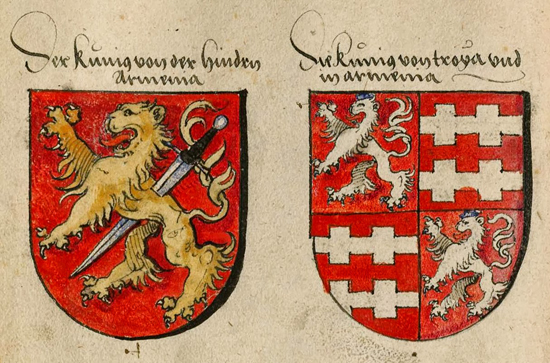 Der Künig von der hindrn
Armenia
Die Künig von troya vnd
in armenia